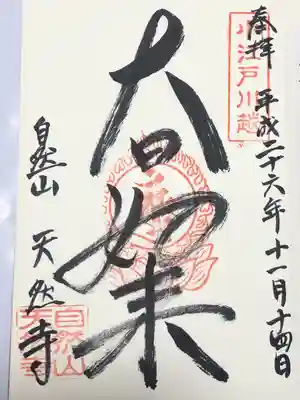 奉拝 平成二十六年十一月十四日
小江戸川越
大日如来
自然山 天然寺
自然山
天然寺